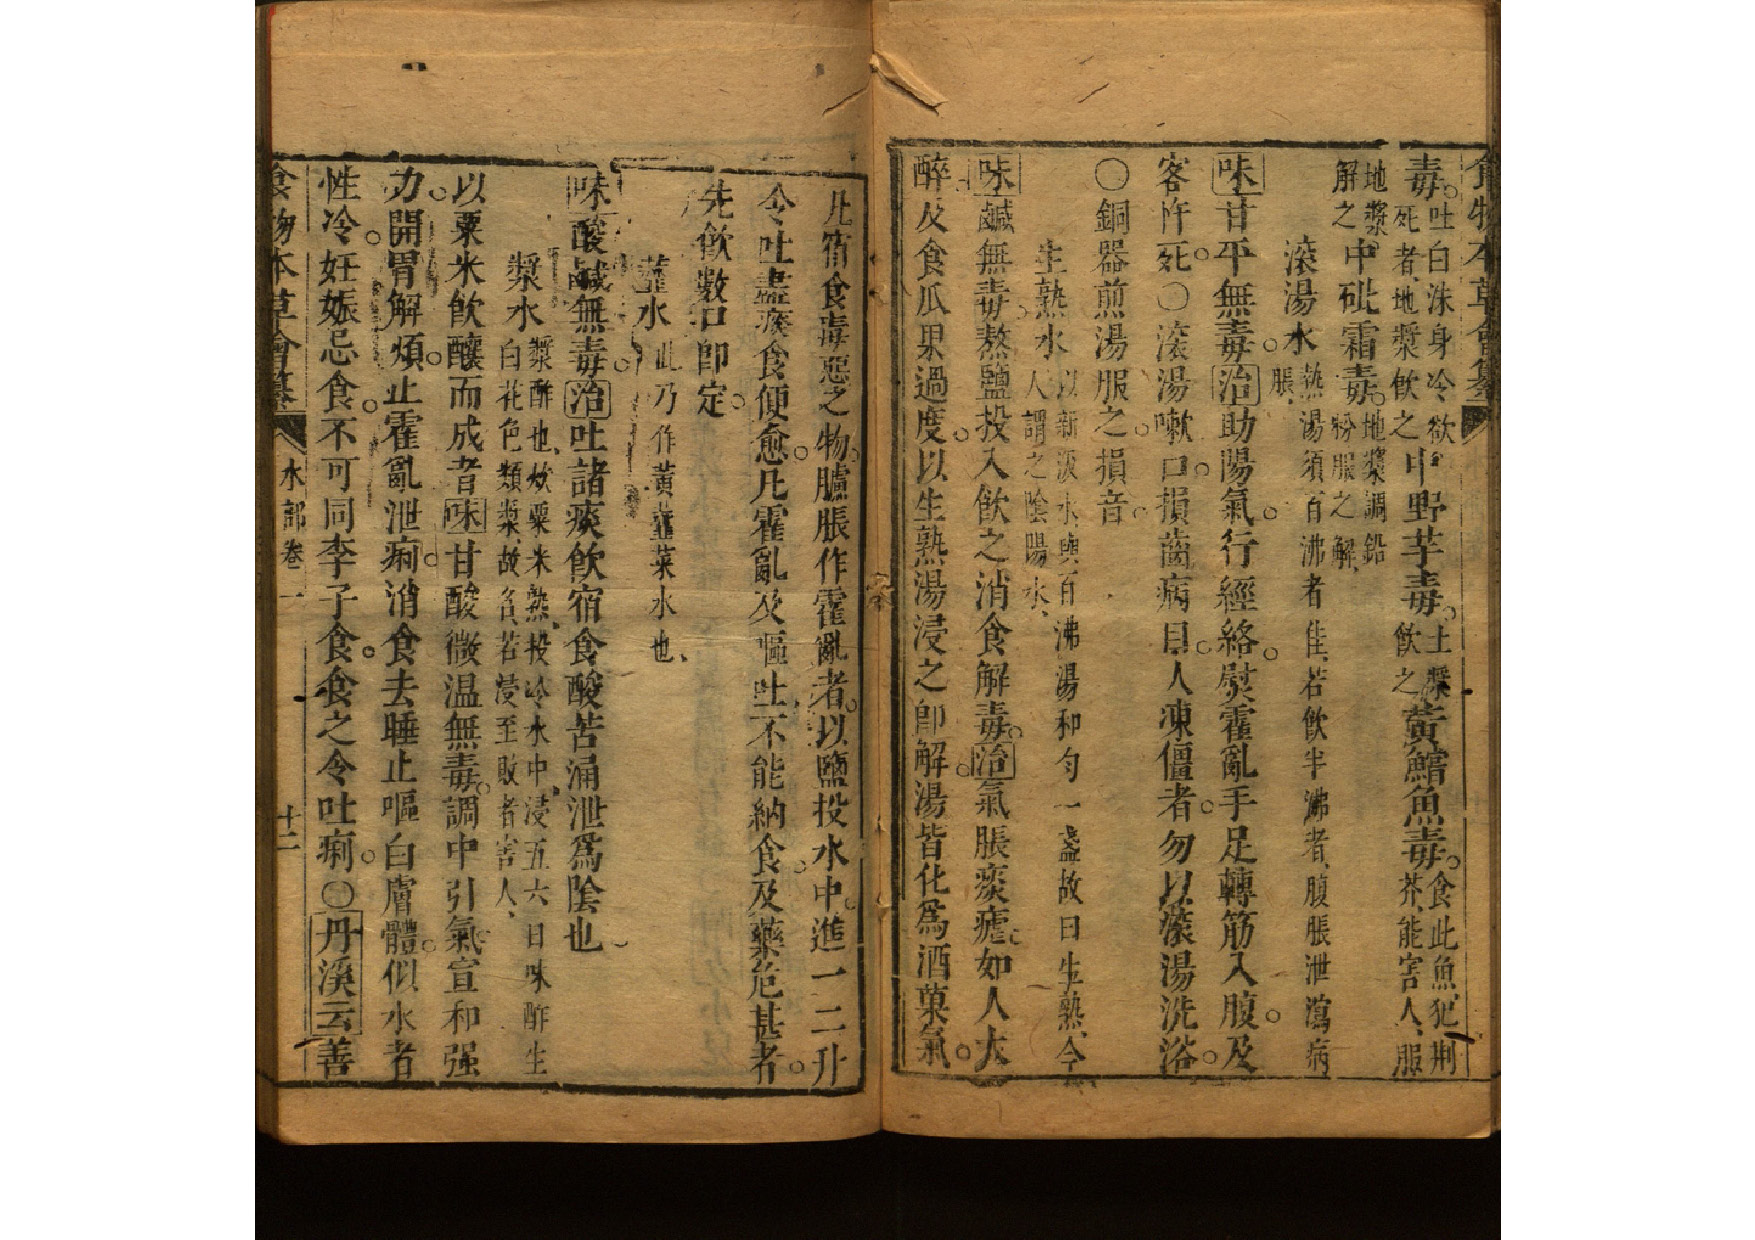 食物本草會纂
毒。吐白沫身冷欲死者、地漿飲之中野芋毒。土漿飲之黃鱨魚毒。食此魚、犯荆芥、能害人、服
地漿解之中砒霜毒。地漿調鉛粉服之解、
滾湯水熱湯須百沸者佳、若飲半沸者、腹脹泄瀉病脹、
味甘平無毒。治助陽氣。行經絡。熨霍亂手足轉筋入腹。及
客忤死。〇滾湯嗽口。損齒病目。人凍僵者。勿以滾湯洗浴。
〇銅器煎湯服之損音。
生熟水以新汲水與百沸湯和勻一盞故曰生熟、今人謂之陰陽水、
味鹹無毒。熬鹽投入飲之消食解毒。治氣脹痰瘧。如人大
醉。及食瓜果過度。以生熟湯浸之卽解。湯皆化爲酒菓氣。
凡宿食毒惡之物。臚脹作霍亂者。以鹽投水中。進一二升
令吐盡痰食便愈。凡霍亂及嘔吐不能納食。及藥危甚者。
先飲數口卽定。
虀水此乃作黃虀菜水也、
味酸鹹無毒。治吐諸痰飲宿食酸苦涌泄爲陰也
漿水漿酢也、炊粟米熟、投冷水中、浸五六日味酢生白花色類漿、故名、若浸至敗者害人、
以粟米飲釀而成者味甘酸微温無毒。調中引氣宣和强
力。開胃解煩。止霍亂泄痢。消食去睡止嘔白膚體。似水者
性冷。妊娠忌食。不可同李子食。食之令吐痢。〇丹溪云善
食物本草會纂 水部卷一 十二